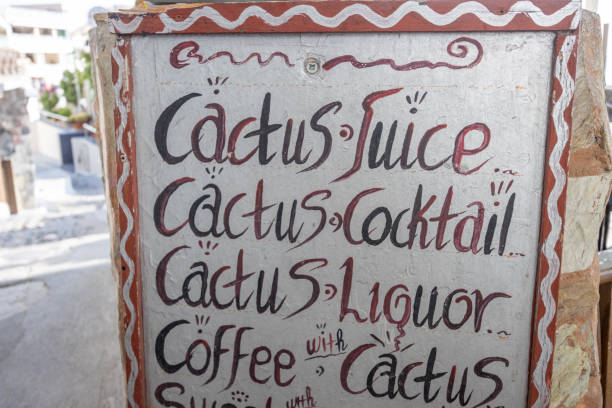 Cactus·Juice
Cactus·Cocktail
Cactus·Liquor
Coffee with Cactus
Sweet with